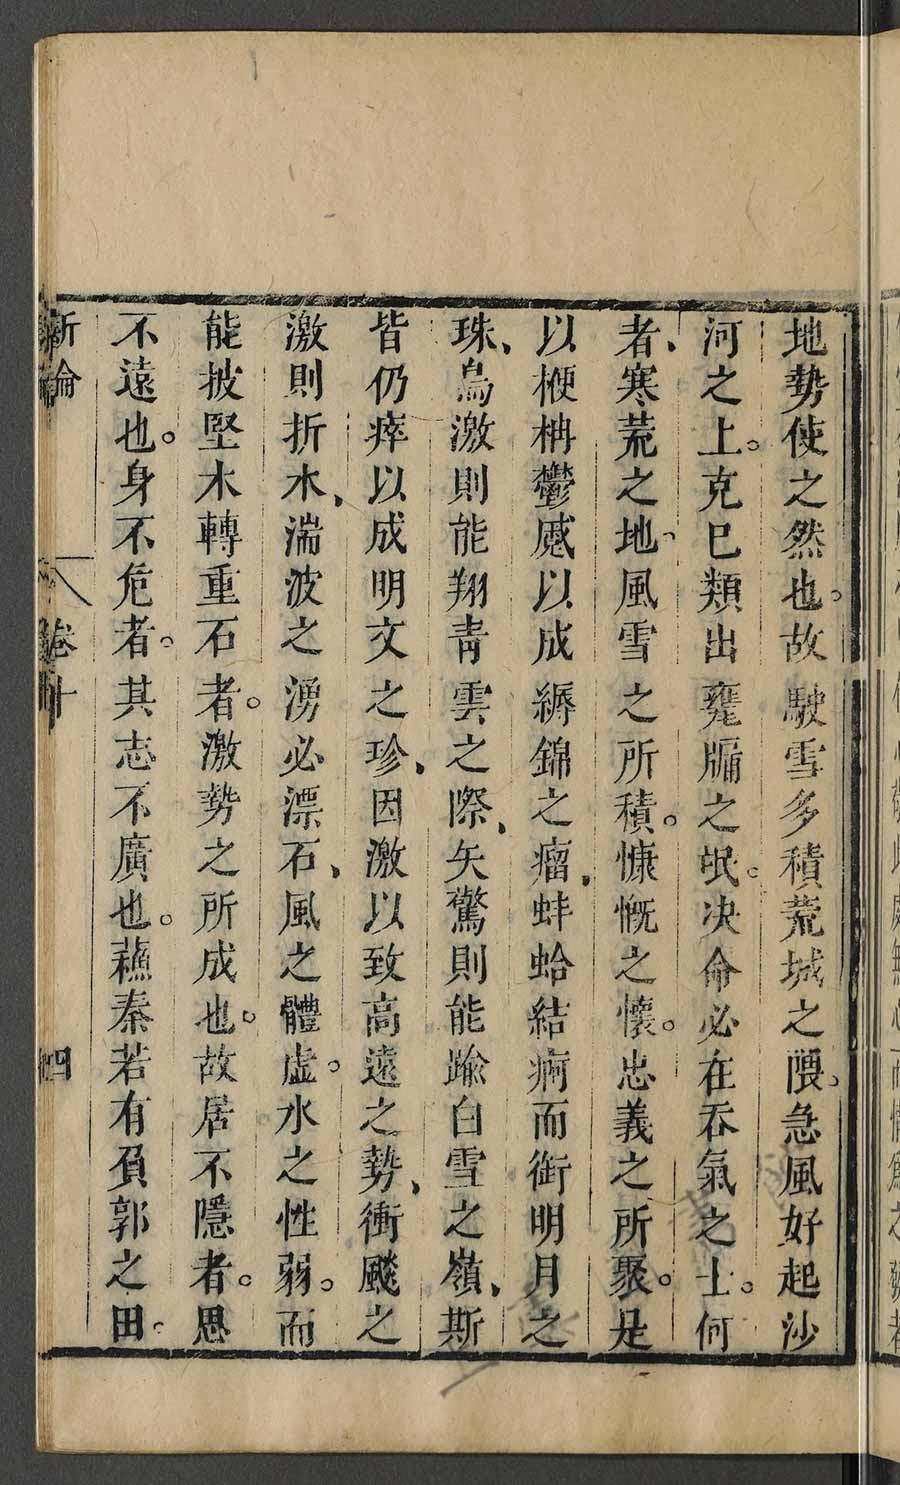 地勢使之然也。故駛雪多積荒城之隈。急風好起沙
河之上。克己類出甕牖之氓。决命必在吞氣之士。何
者、寒荒之地、風雪之所積。慷慨之懷。忠義之所聚。是
以楩柟鬱蹙以成縟錦之瘤、蚌蛤結痾而銜明月之
珠、鳥激則能翔青雲之際、矢驚則能踰白雪之嶺、斯
皆仍瘁以成明文之珍、因激以致高遠之勢、衝飈之
激則折木、湍波之湧必漂石、風之體虛。水之性弱。而
能披堅木轉重石者。激勢之所成也。故居不隱者。思
不遠也。身不危者。其志不廣也。蘓秦若有負郭之田。
新論 卷十 四